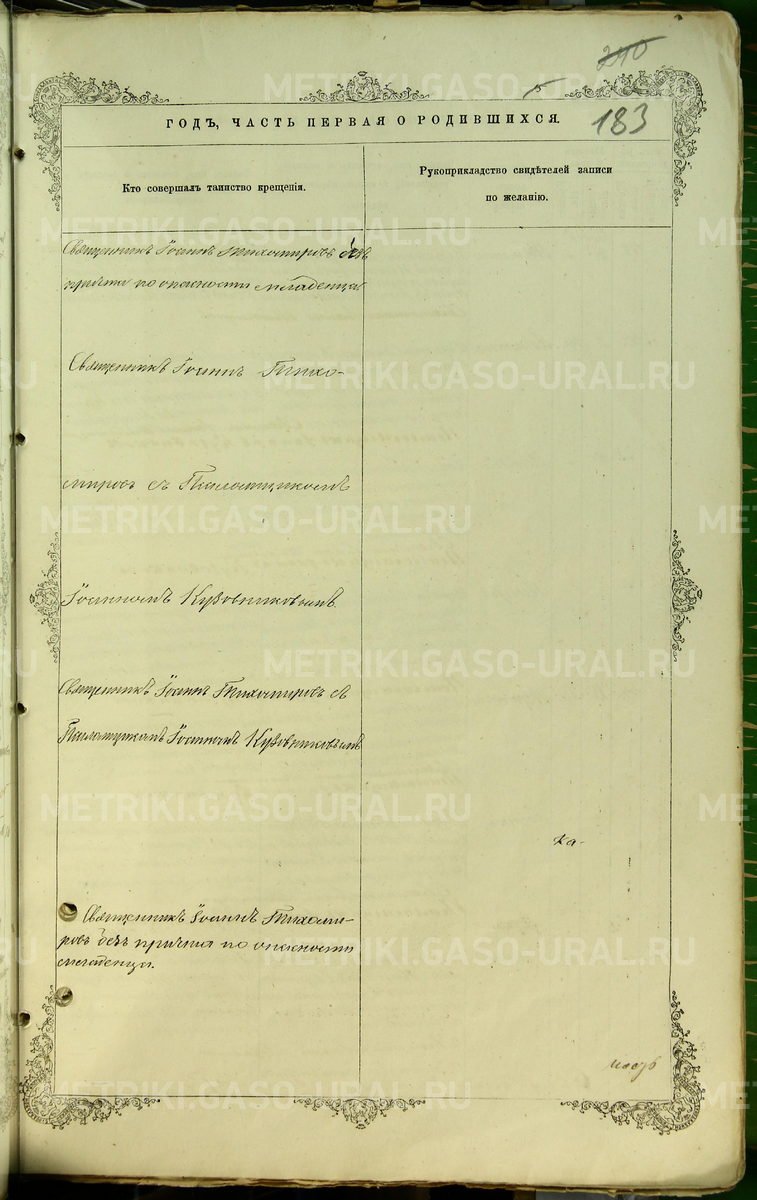 240
183
ГОДЪ, ЧАСТЬ ПЕРВАЯ О РОДИВШИХСЯ.
Кто совершалъ таинство крещенія.
Рукоприкладство свидѣтелей записи
по желанію.
Священникъ Іоаннъ Тихомировъ безъ
причта по опасности младенца
Священникъ Іоаннъ Тихо-
мировъ съ Псаломщикомъ
Іоанномъ Кузовниковымъ.
Священникъ Іоаннъ Тихомировъ съ
Псаломщикомъ Іоанномъ Кузовниковымъ
ка-
Священникъ Іоаннъ Тихоми-
ровъ безъ причта по опасности
младенца.
METRIKI.GASO-URAL.RU